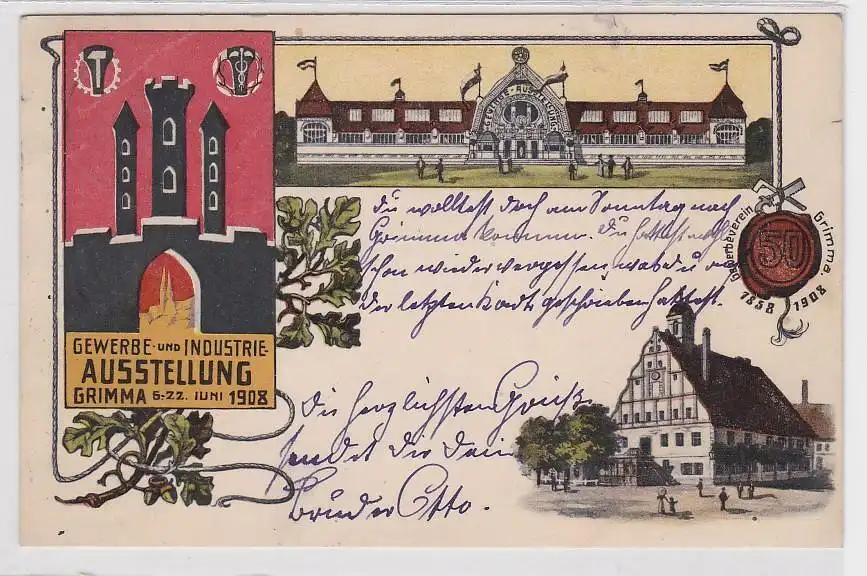 GEWERBE- UND INDUSTRIE-
AUSSTELLUNG
GRIMMA 6.-22. JUNI 1908
GEWERBE-AUSSTELLUNG
Gewerbeverein Grimma.
50
1858 1908
Du wolltest doch am Sonntag nach
Grimma kommen. Du hattest wohl
schon wieder vergessen was du
der letzten Karte geschrieben hattest.
Die herzlichsten Grüße
sendet dir dein
Bruder Otto.